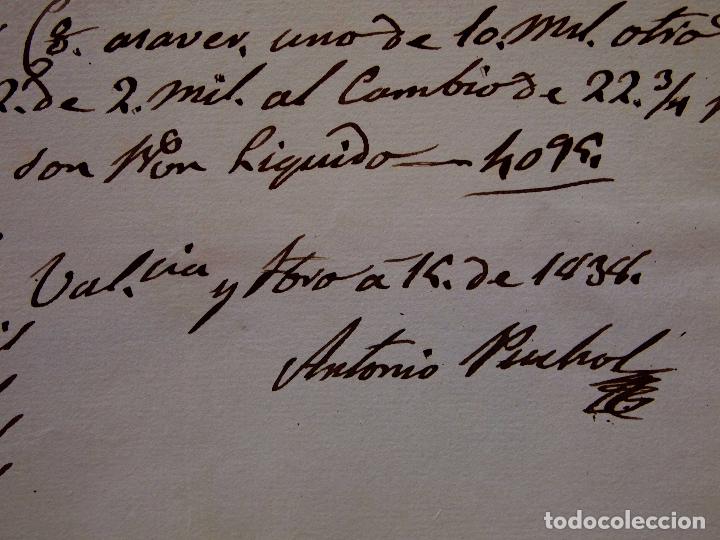 asaver, uno de 10. Mil. otro
2. de 2. Mil. al Cambio de 22. 3/4
son Rs. on Liquido — 4095.
Val.cia y a 15. de 1838.
Antonio Puchol
todocoleccion